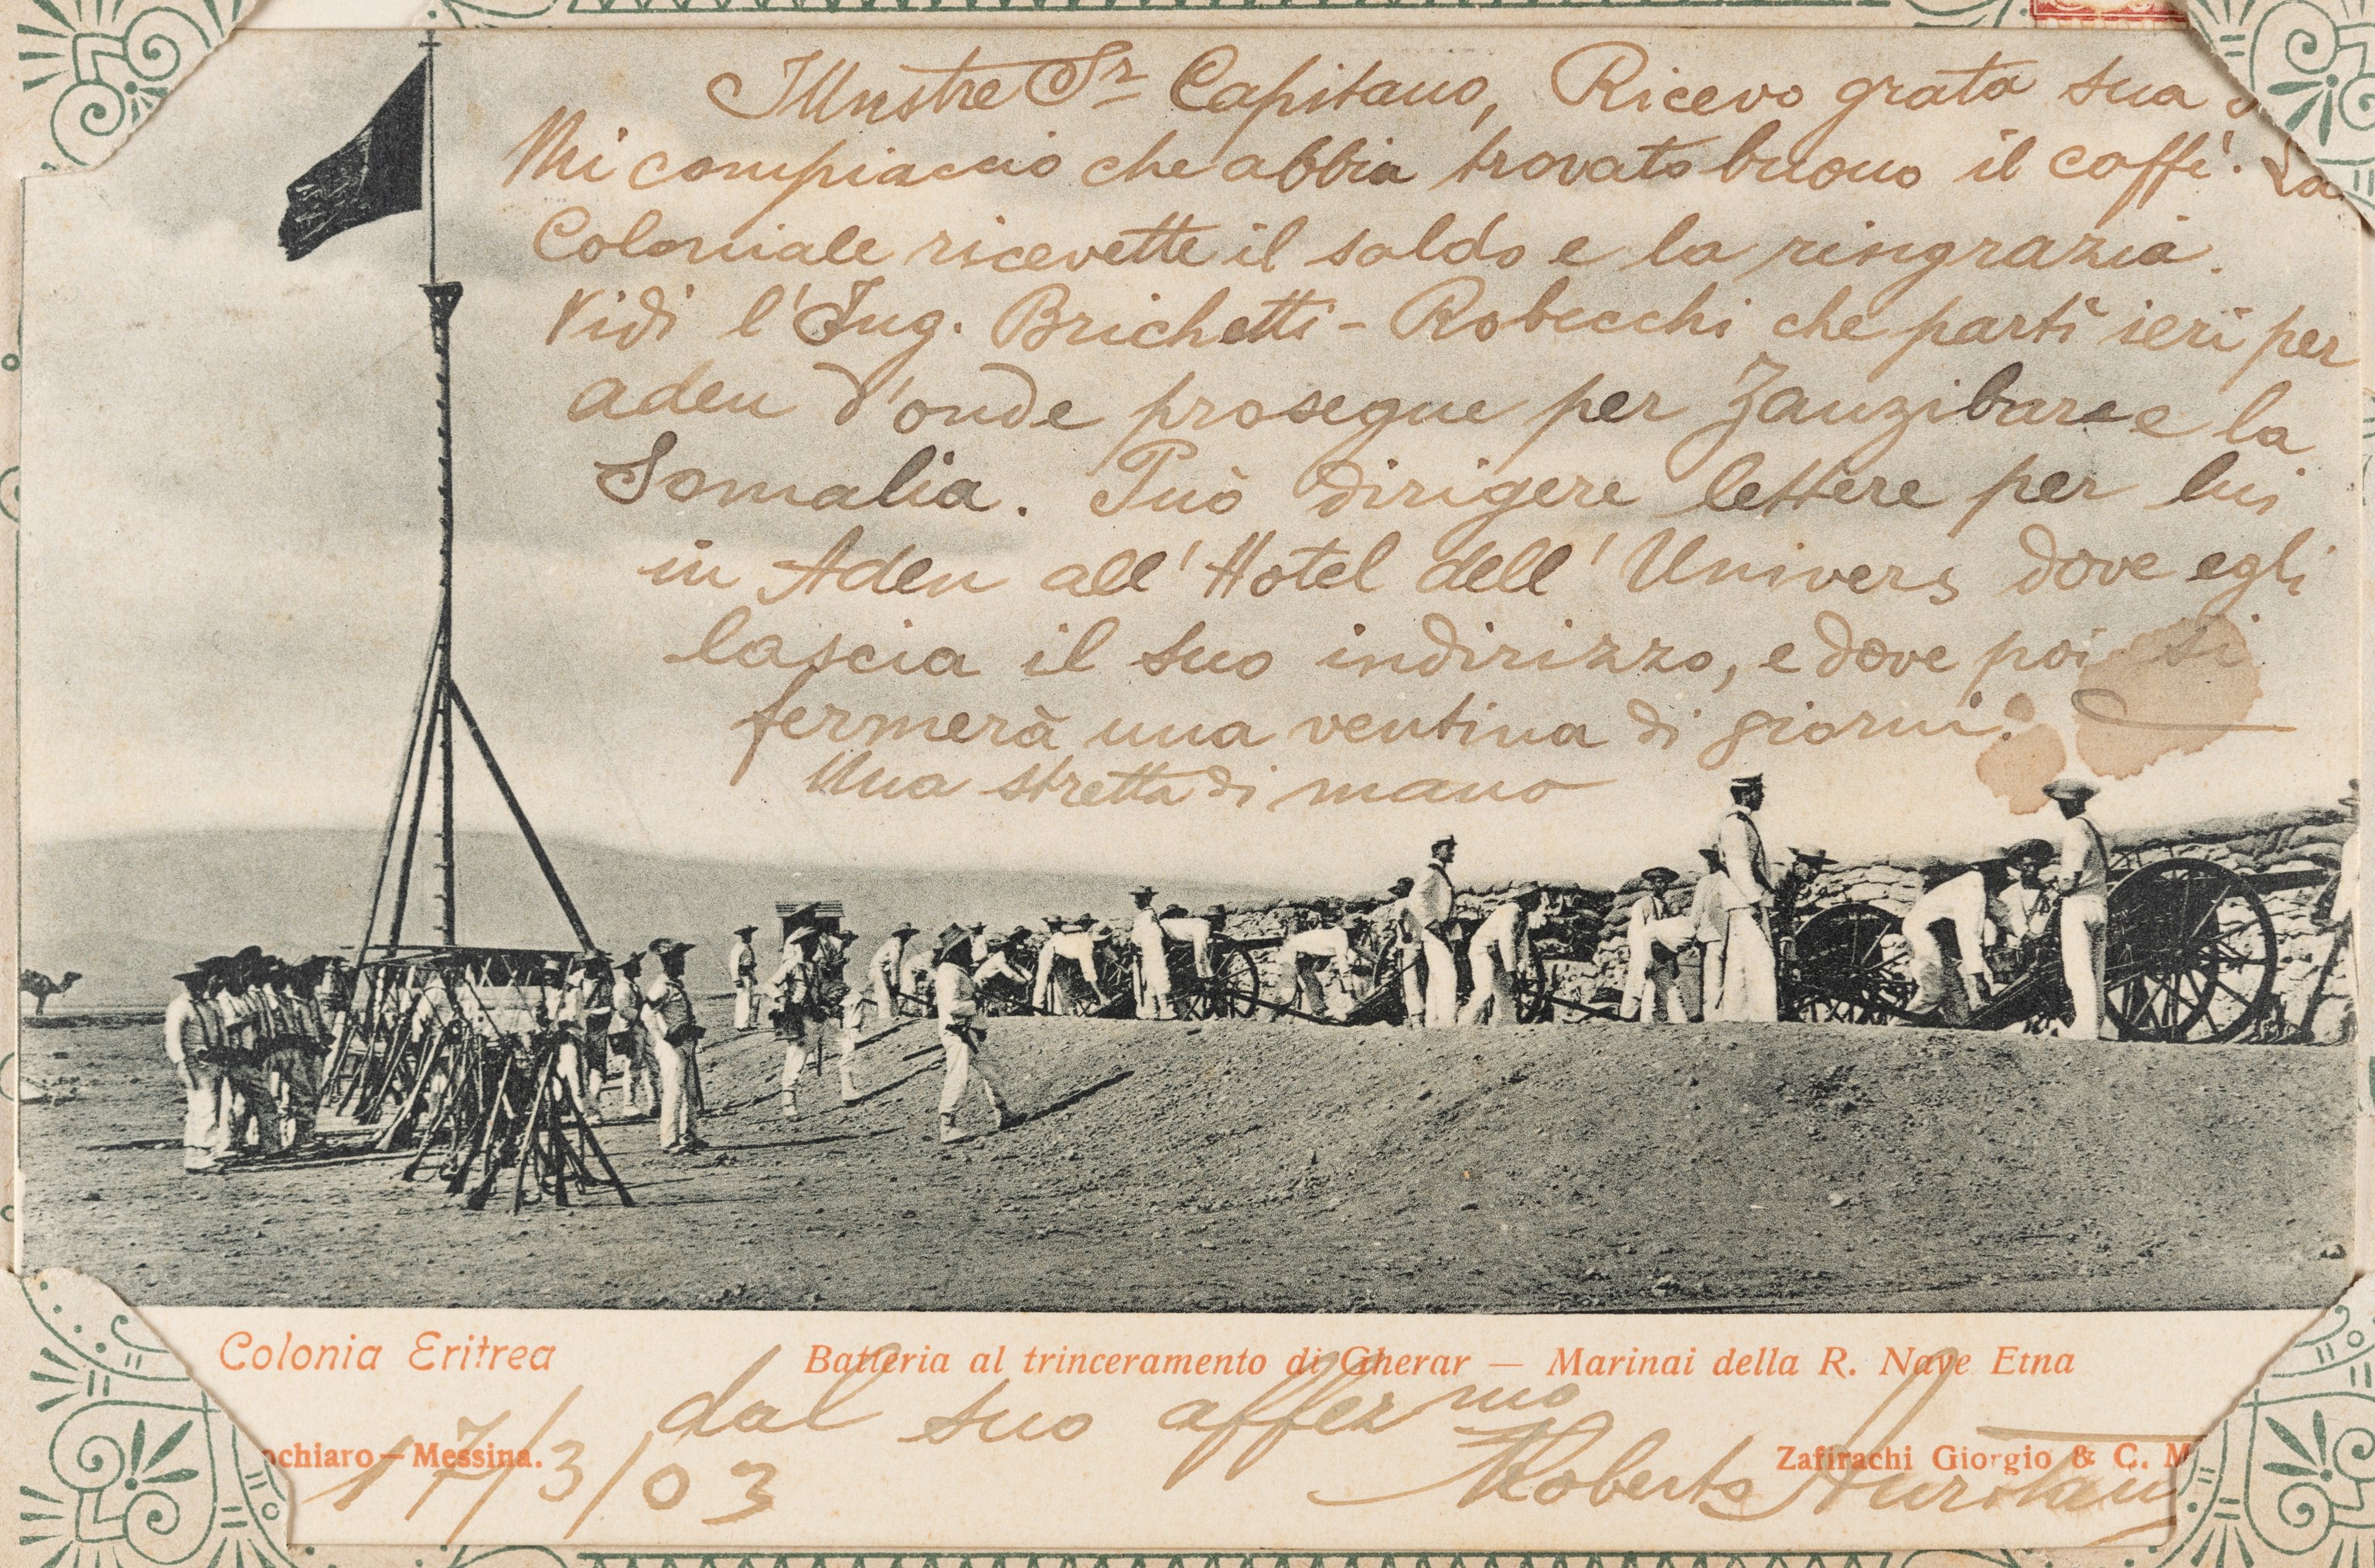 Illustre Sr Capitano, Ricevo grata sua
Mi compiaccio che abbia trovato buono il caffè. La
Coloniale ricevette il saldo e la ringrazia.
Vidi l'Ing. Brichetti-Robecchi che partì ieri per
aden d'onde prosegue per Zanzibar e la
Somalia. Può dirigere lettere per lui
in Aden all'Hotel dell'Univers dove egli
lascia il suo indirizzo, e dove poi si
fermerà una ventina di giorni.
Una stretta di mano
Colonia Eritrea
Batteria al trinceramento di Gherar — Marinai della R. Nave Etna
dal suo affezmo
ochiaro—Messina.
Zafirachi Giorgio & C. M
17/3/03
Roberto